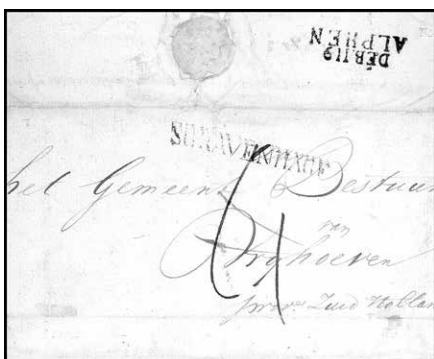 DÉB.119
ALPHEN
S'GRAVENHAGE
het Gemeente Bestuur
van
hoeven
Zuid Holland